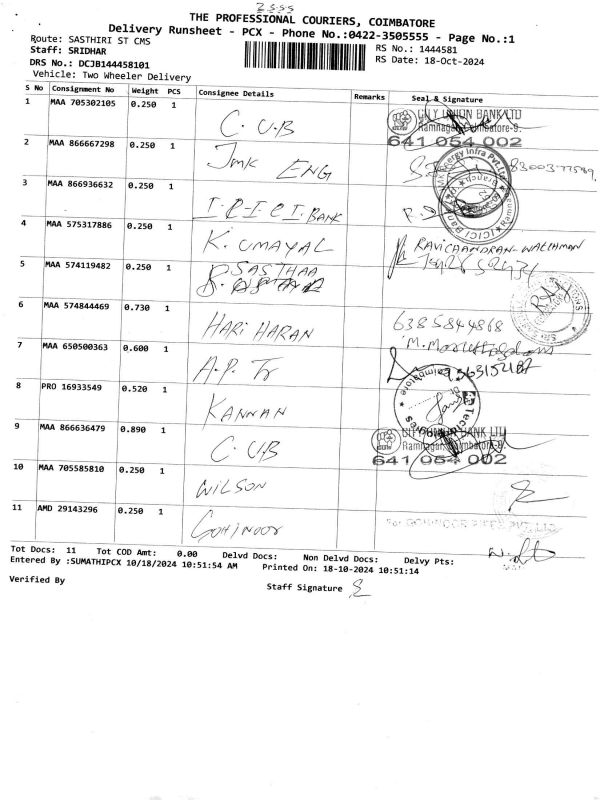 THE PROFESSIONAL COURIERS, COIMBATORE
Delivery Runsheet - PCX - Phone No.:0422-3505555 - Page No.:1
Route: SASTHIRI ST CMS
RS No.: 1444581
Staff: SRIDHAR
RS Date: 18-Oct-2024
DRS No.: DCJB144458101
Vehicle: Two Wheeler Delivery
S No Consignment No Weight PCS Consignee Details Remarks Seal & Signature
1 MAA 705302105 0.250 1 C.U.B CITY UNION BANK LTD
Ramnagar, Coimbatore-9.
641 054 002
2 MAA 866667298 0.250 1 Jmk ENG
3 MAA 866936632 0.250 1 I.C.I.C.I. BANK
4 MAA 575317886 0.250 1 K. UMAYAL RAVICHANDRAN
5 MAA 574119482 0.250 1 SASTHAA
6 MAA 574844469 0.730 1 HARI HARAN 6385844868
7 MAA 650500363 0.600 1 A.P. Tr
8 PRO 16933549 0.520 1 KANNAN
9 MAA 866636479 0.890 1 C.U.B CITY UNION BANK LTD
Ramnagar, Coimbatore-9.
641 054 002
10 MAA 705585810 0.250 1 WILSON
11 AMD 29143296 0.250 1 GOHINOOR
Tot Docs: 11 Tot COD Amt: 0.00 Delvd Docs: Non Delvd Docs: Delvy Pts:
Entered By :SUMATHIPCX 10/18/2024 10:51:54 AM Printed On: 18-10-2024 10:51:14
Verified By
Staff Signature